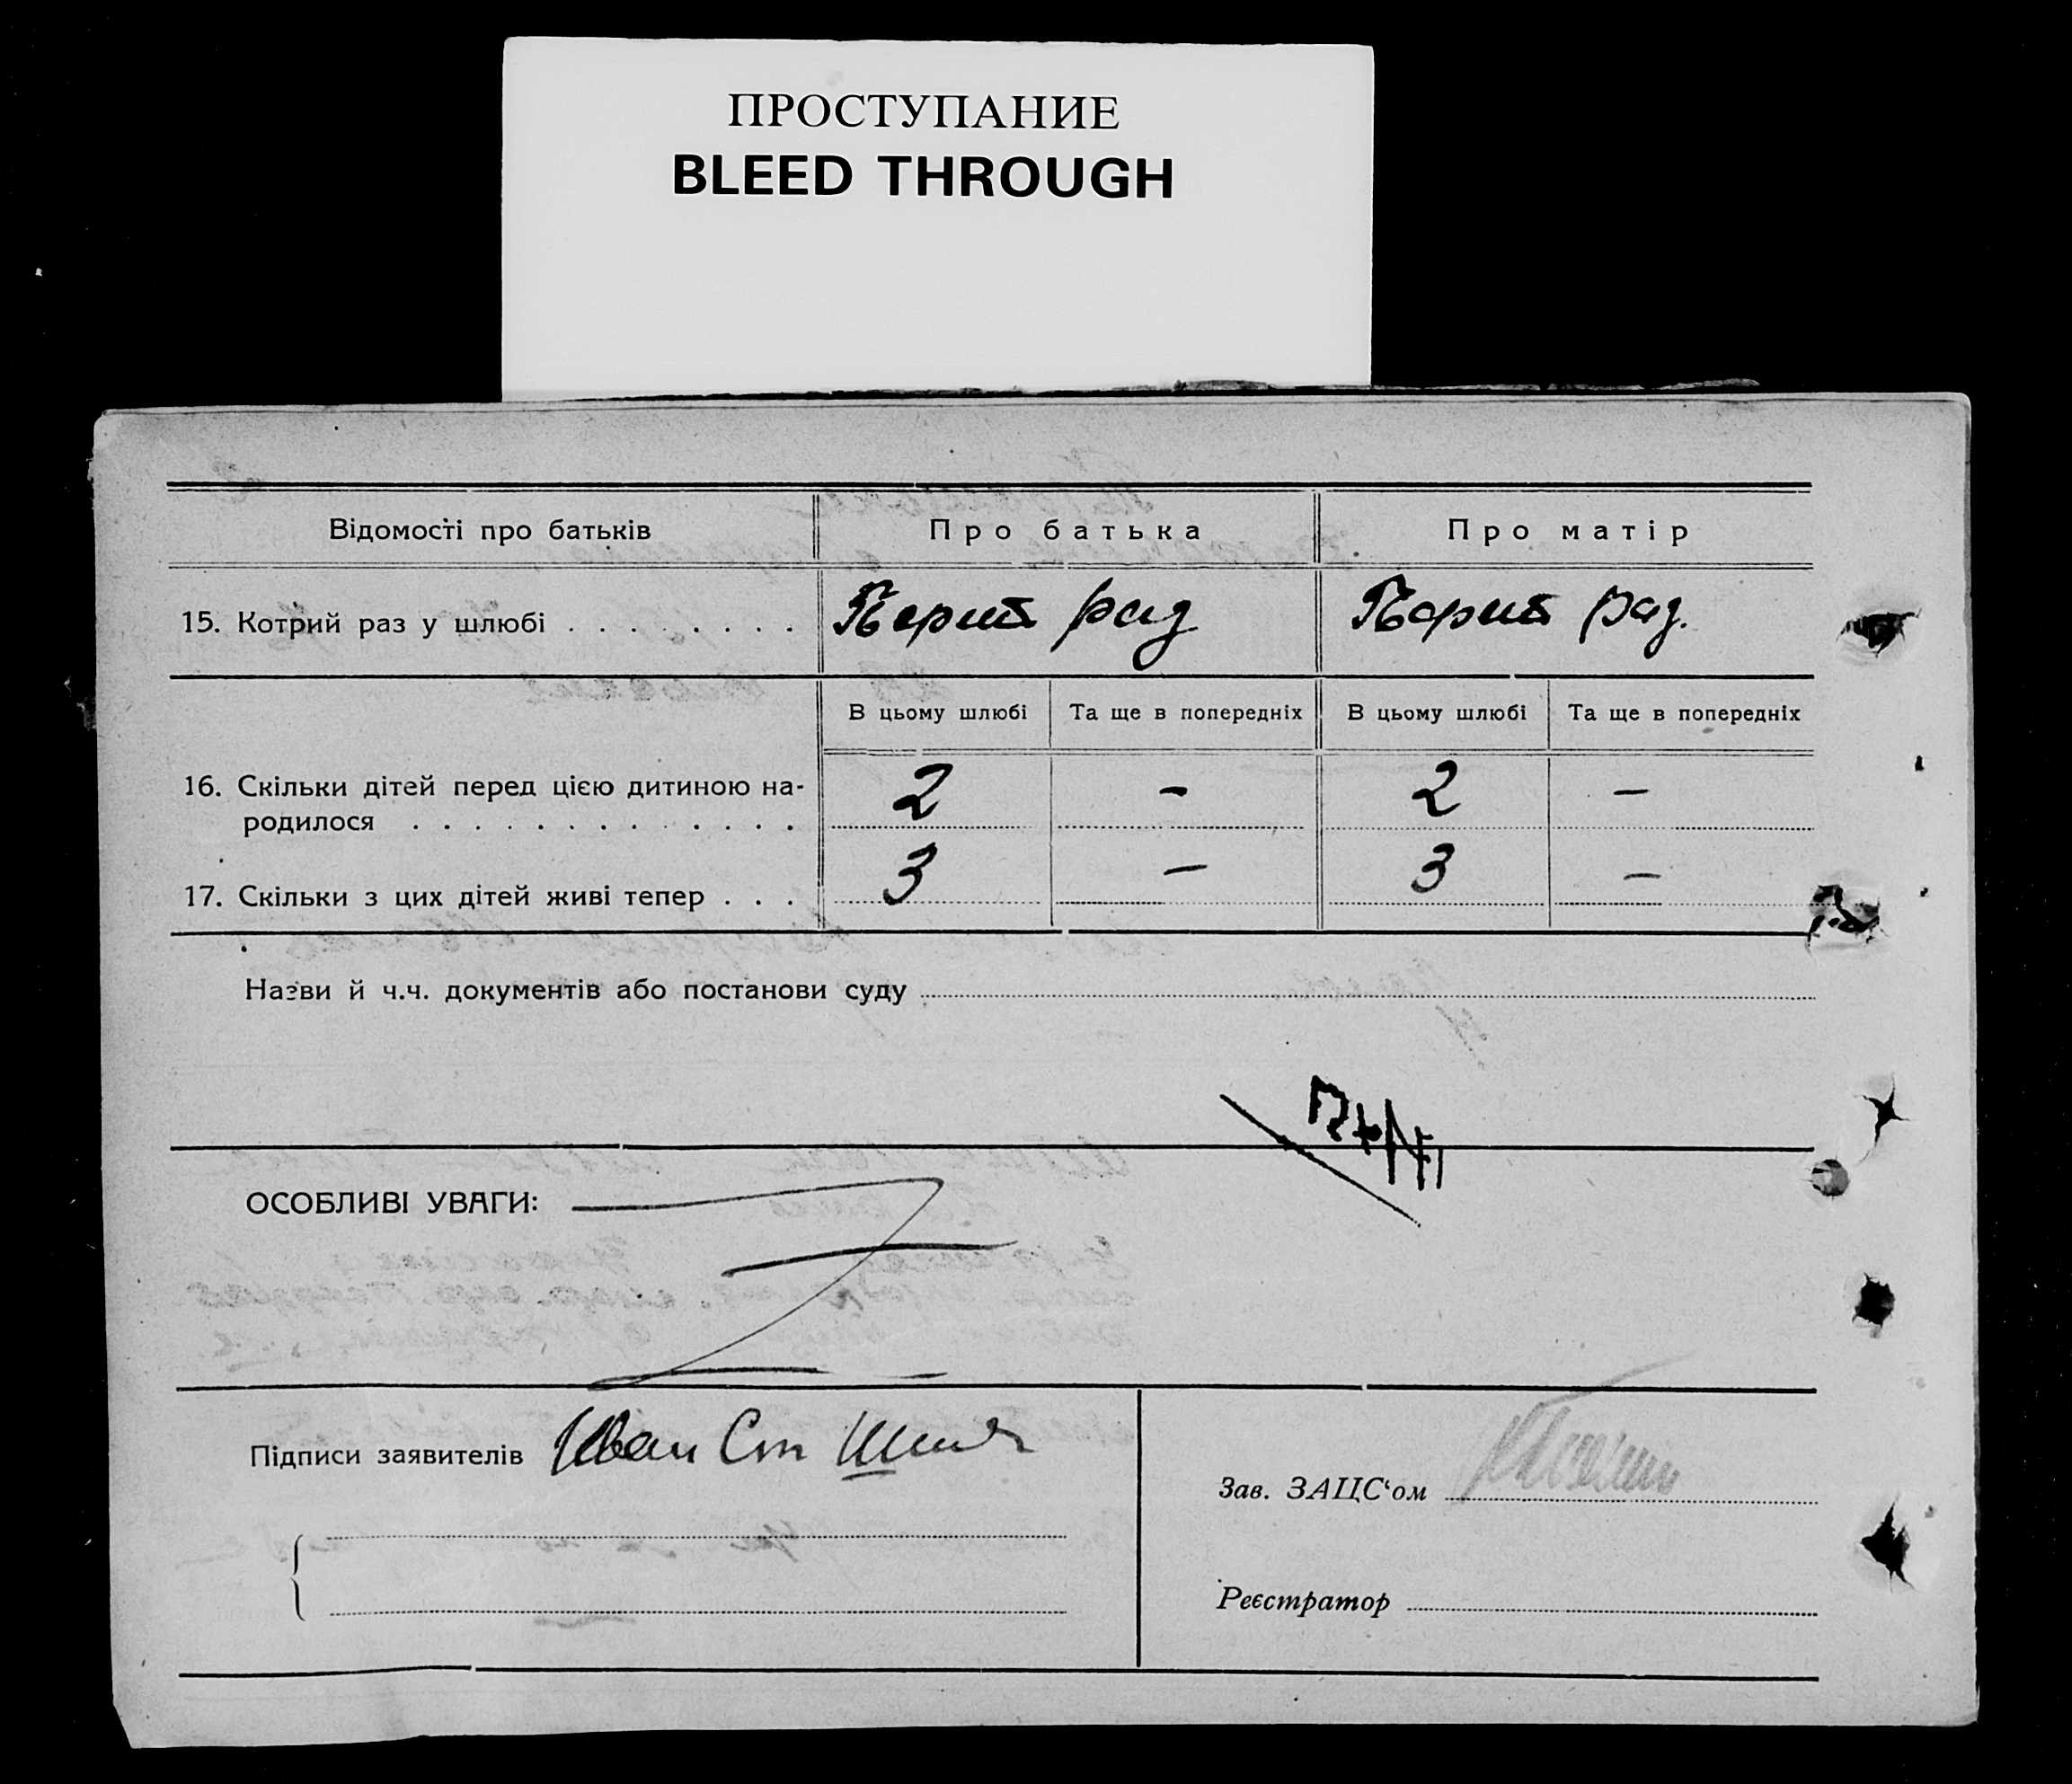 ПРОСТУПАНИЕ
BLEED THROUGH
Відомості про батьків Про батька Про матір
15. Котрий раз у шлюбі . . . . . . . . Перший раз Перший раз.
В цьому шлюбі Та ще в попередніх В цьому шлюбі Та ще в попередніх
16. Скільки дітей перед цією дитиною на-
родилося . . . . . . . . . . . . . 2 - 2 -
17. Скільки з цих дітей живі тепер . . . 3 - 3 -
Назви й ч.ч. документів або постанови суду
ОСОБЛИВІ УВАГИ:
Підписи заявителів Иван Ст
Зав. ЗАЦС'ом
Реєстратор